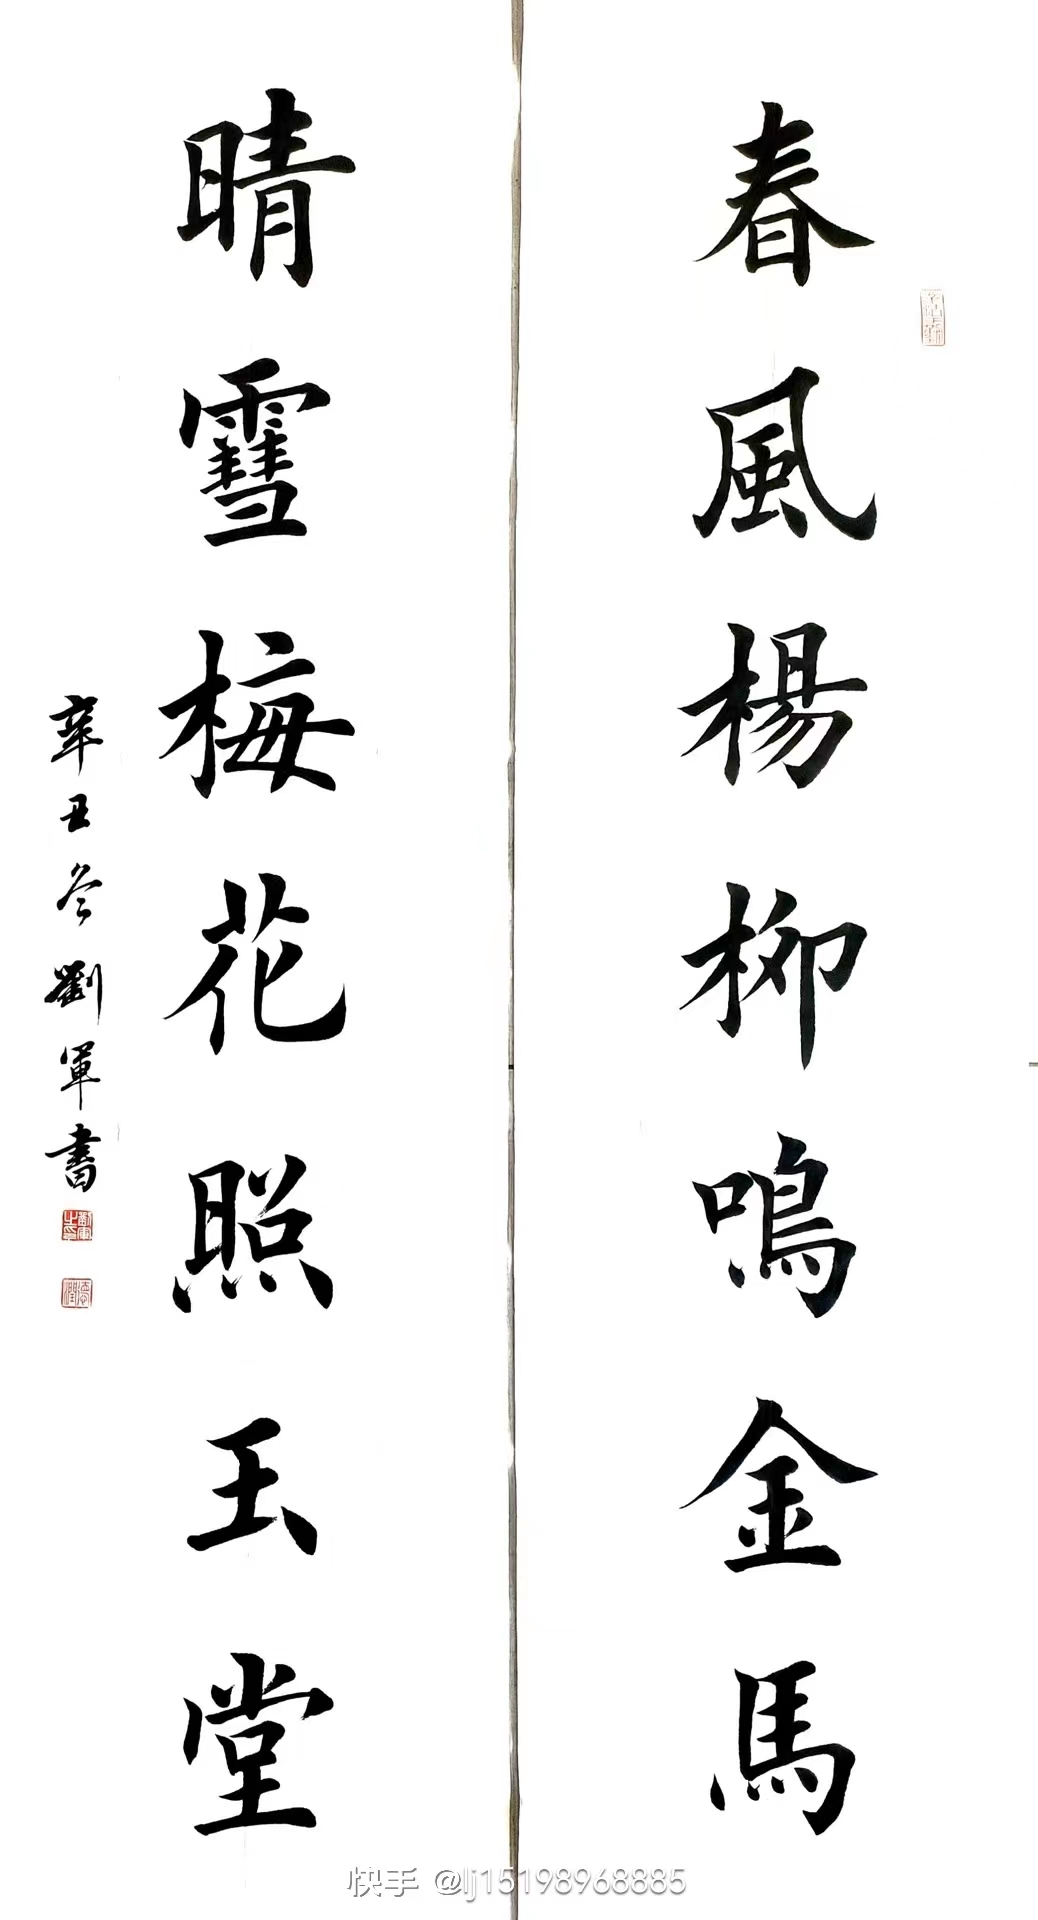 春風楊柳鳴金馬
晴雪梅花照玉堂
辛丑冬劉軍書
快手 @lj15198968885